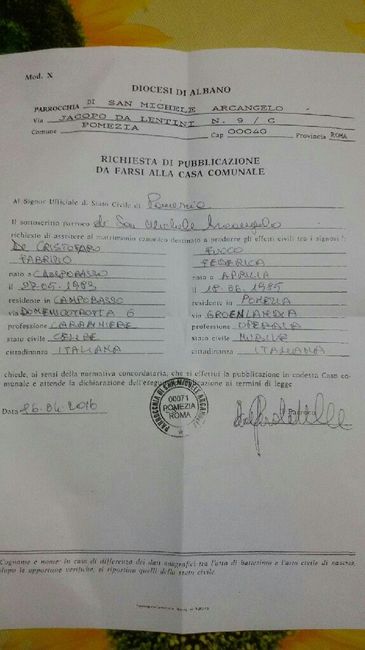 Mod. X
DIOCESI DI ALBANO
PARROCCHIA DI SAN MICHELE ARCANGELO
Via JACOPO DA LENTINI N. 9 / C
Comune POMEZIA Cap 00040 Provincia ROMA
RICHIESTA DI PUBBLICAZIONE
DA FARSI ALLA CASA COMUNALE
Al Signor Ufficiale di Stato Civile di Pomezia
Il sottoscritto parroco di San Michele Arcangelo
richiesto di assistere al matrimonio canonico destinato a produrre gli effetti civili tra i signori:
DE CRISTOFARO
FABRIZIO
nato a CAMPOBASSO
il 27.05.1983
residente in CAMPOBASSO
via 6
professione CARABINIERE
stato civile CELIBE
cittadinanza ITALIANA
FUCCO
FEDERICA
nata a APRILIA
il 18.06.1985
residente in POMEZIA
via GROENLANDIA
professione OPERAIA
stato civile NUBILE
cittadinanza ITALIANA
chiede, ai sensi della normativa concordataria, che si effettui la pubblicazione in codesta Casa co-
munale e attende la dichiarazione dell'eseguita pubblicazione ai termini di legge
Data 26.04.2016
Il Parroco
PARROCCHIA DI SAN MICHELE ARCANGELO
00071
POMEZIA
ROMA
Cognome e nome: in caso di differenza dei dati anagrafici tra l'atto di battesimo e l'atto civile di nascita,
dopo le opportune verifiche, si riportino quelli dello stato civile.